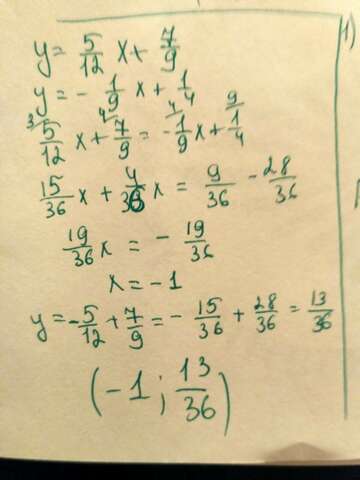 y = 5/12 x + 7/9
y = - 1/9 x + 1/4
³ 5/12 x + ⁴ 7/9 = - ⁴ 1/9 x + ⁹ 1/4
15/36 x + 4/36 x = 9/36 - 28/36
19/36 x = - 19/36
x = -1
y = - 5/12 + 7/9 = - 15/36 + 28/36 = 13/36
(-1 ; 13/36)
1)